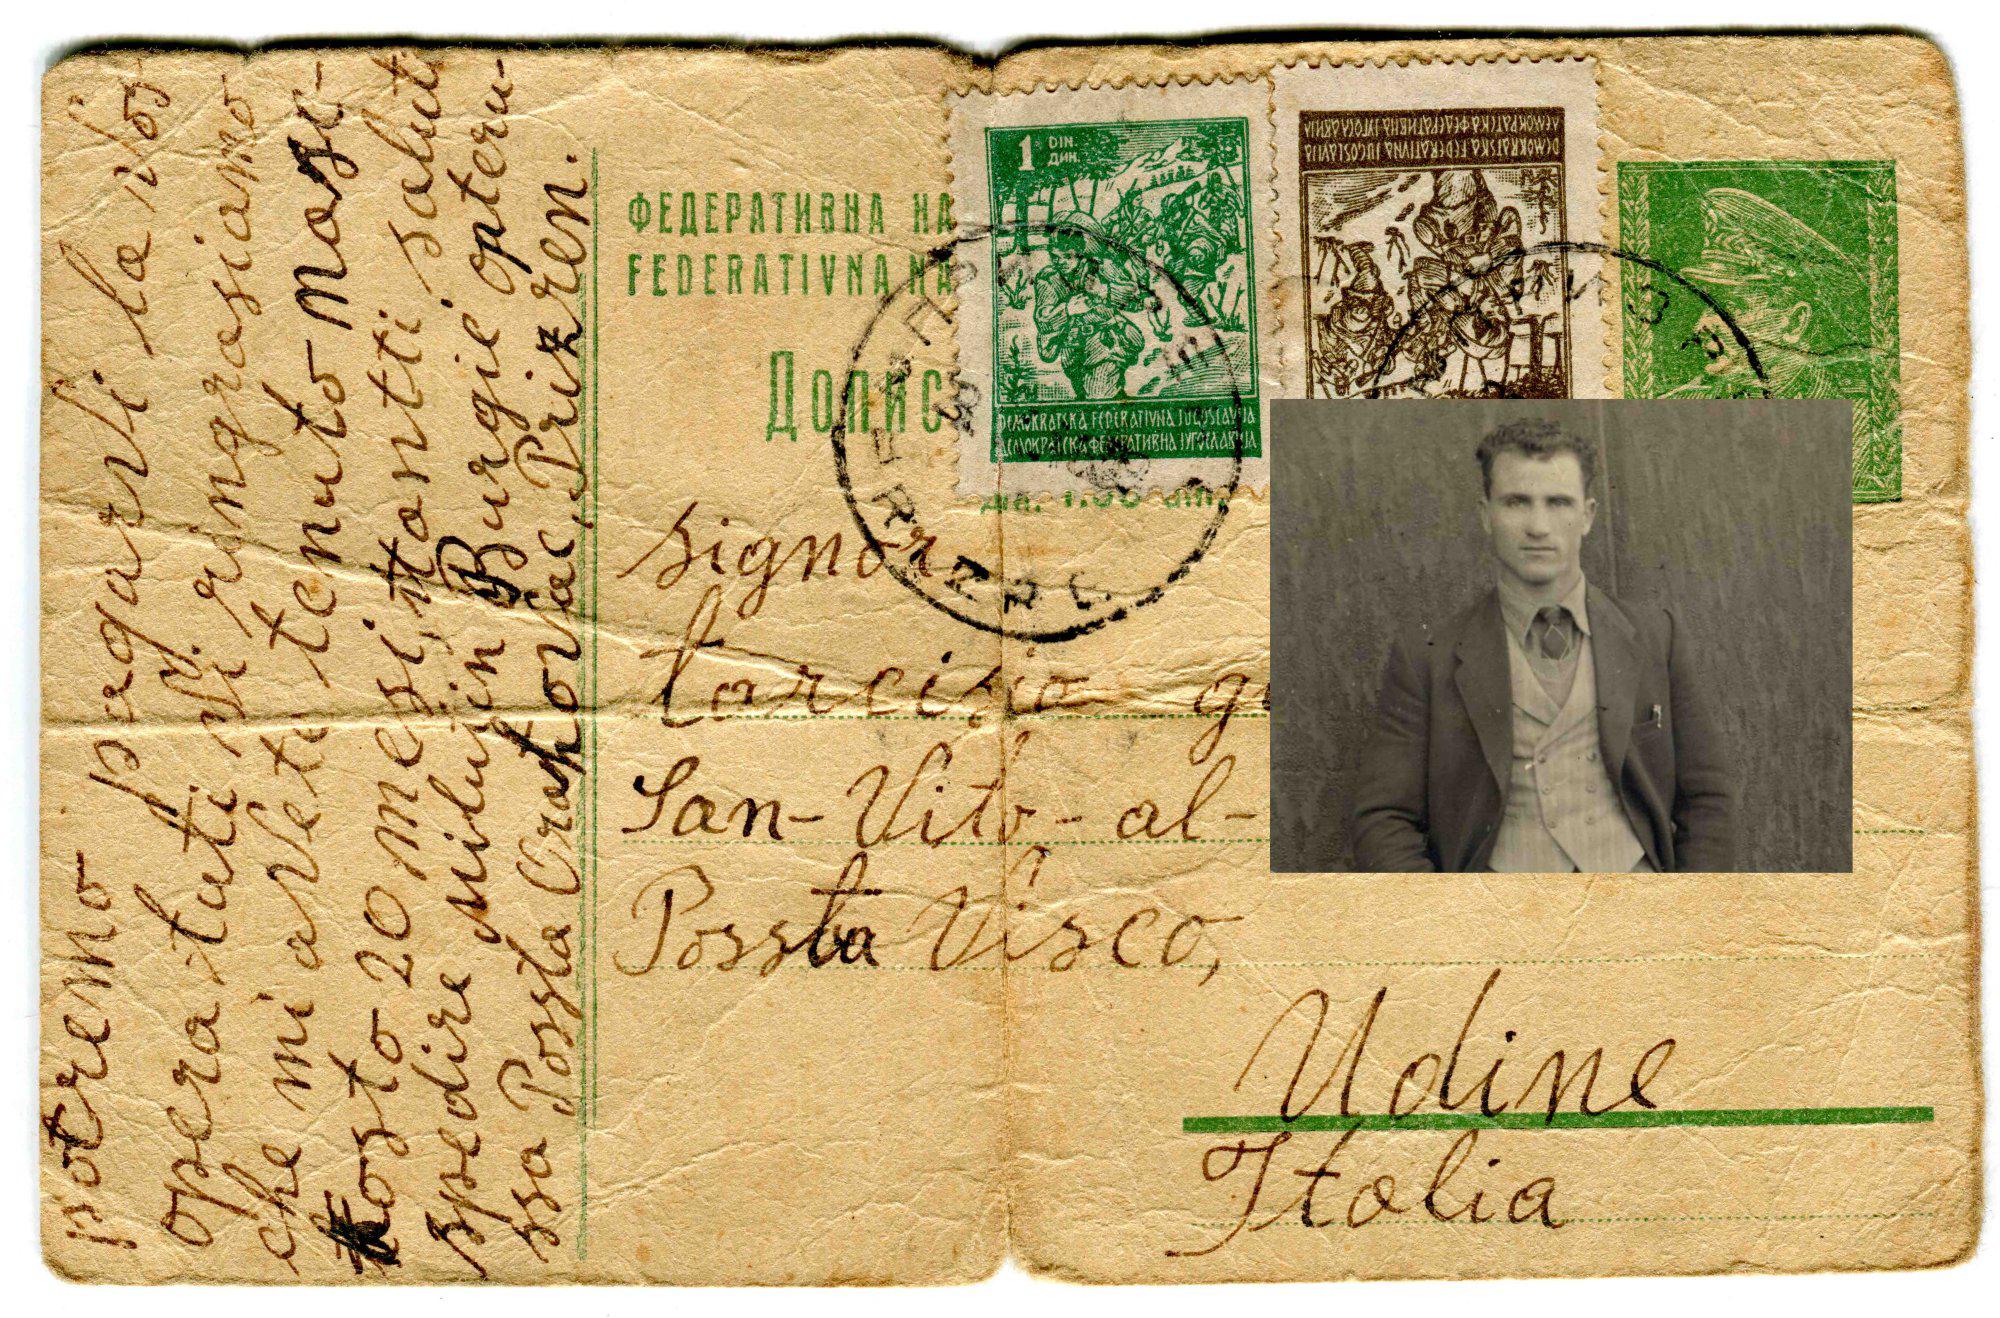 potremo pagarvi la vos-
opera, tuti vi ringrosiamo
che mi avete tenuto nasc-
kosto 20 mesi, ttontti saluti
spedire Milujin Burgie opteru-
ssa Possta Orahovac, Prizren.
ФЕДЕРАТИВНА НА
FEDERATIVNA NA
Допис
1 DIN.
ДИН.
DEMOKRATSKA FEDERATIVNA JUGOSLAVIJA
ДЕМОКРАТСКА ФЕДЕРАТИВНА ЈУГОСЛАВИЈА
DEMOKRATSKA FEDERATIVNA JUGOSLAVIJA
ДЕМОКРАТСКА ФЕДЕРАТИВНА ЈУГОСЛАВИЈА
signor
tarcisio
San-Vito-al-
Possta Visco,
Udine
Italia